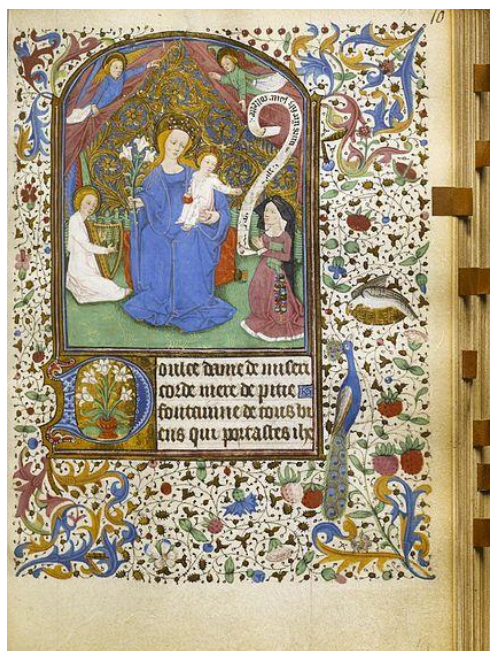 10
Doulce dame de miseri
corde mere de pitie
fontainne de tous bi
ens qui portastes ihe